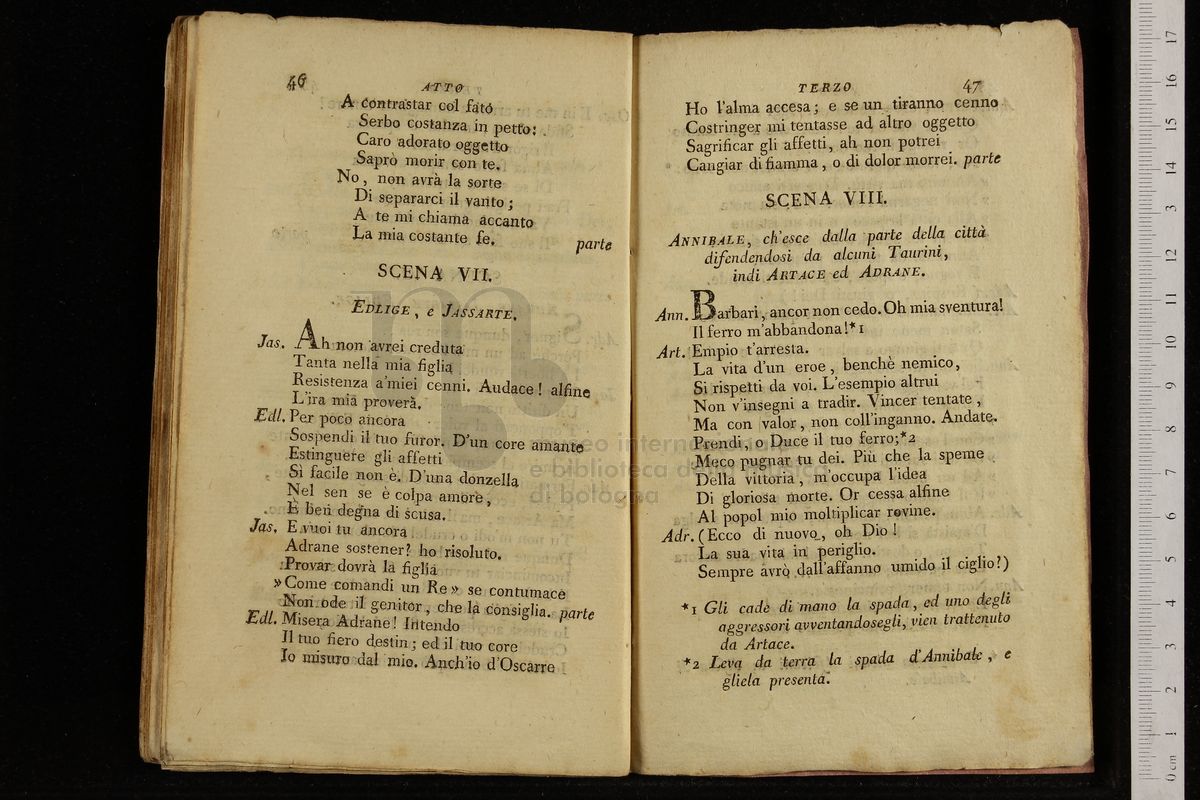 46
ATTO
A contrastar col fato
Serbo costanza in petto:
Caro adorato oggetto
Saprò morir con te.
No, non avrà la sorte
Di separarci il vanto;
A te mi chiama accanto
La mia costante fe. parte
SCENA VII.
EDLIGE, e JASSARTE.
Jas. Ah non avrei creduta
Tanta nella mia figlia
Resistenza a'miei cenni. Audace! alfine
L'ira mia proverà.
Edl. Per poco ancora
Sospendi il tuo furor. D'un core amante
Estinguere gli affetti
Sì facile non è. D'una donzella
Nel sen se è colpa amore,
È ben degna di scusa.
Jas. E vuoi tu ancora
Adrane sostener? ho risoluto.
Provar dovrà la figlia
»Come comandi un Re» se contumace
Non ode il genitor, che la consiglia. parte
Edl. Misera Adrane! Intendo
Il tuo fiero destin; ed il tuo core
Io misuro dal mio. Anch'io d'Oscarre
TERZO
47
Ho l'alma accesa; e se un tiranno cenno
Costringer mi tentasse ad altro oggetto
Sagrificar gli affetti, ah non potrei
Cangiar di fiamma, o di dolor morrei. parte
SCENA VIII.
ANNIBALE, ch'esce dalla parte della città
difendendosi da alcuni Taurini,
indi ARTACE ed ADRANE.
Ann. Barbari, ancor non cedo. Oh mia sventura!
Il ferro m'abbandona!*1
Art. Empio t'arresta.
La vita d'un eroe, benchè nemico,
Si rispetti da voi. L'esempio altrui
Non v'insegni a tradir. Vincer tentate,
Ma con valor, non coll'inganno. Andate.
Prendi, o Duce il tuo ferro;*2
Meco pugnar tu dei. Più che la speme
Della vittoria, m'occupa l'idea
Di gloriosa morte. Or cessa alfine
Al popol mio moltiplicar rovine.
Adr. (Ecco di nuovo, oh Dio!
La sua vita in periglio.
Sempre avrò dall'affanno umido il ciglio?)
*1 Gli cade di mano la spada, ed uno degli
aggressori avventandosegli, vien trattenuto
da Artace.
*2 Leva da terra la spada d'Annibale, e
gliela presenta.
museo internazionale
e biblioteca della musica
di bologna
0 cm 1 2 3 4 5 6 7 8 9 10 11 12 13 14 15 16 17